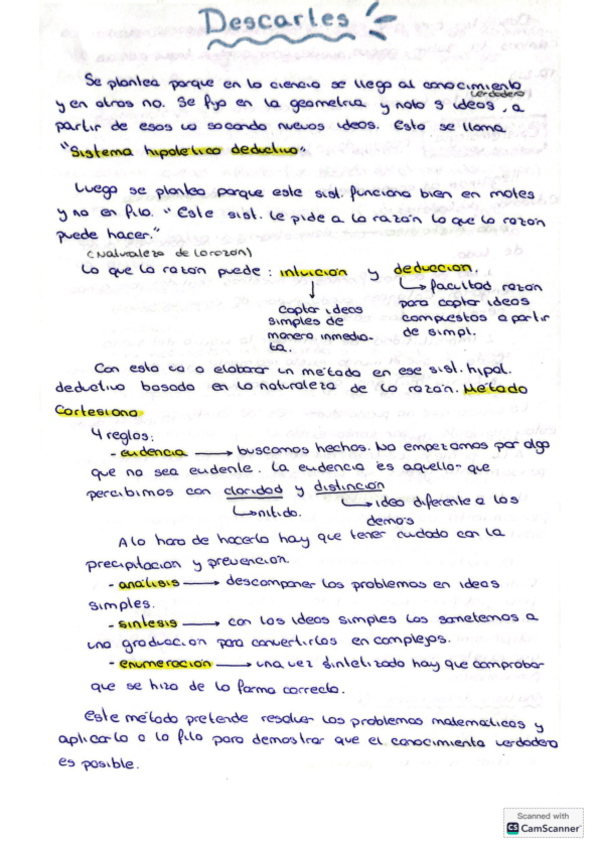 Descartes
Se plantea porque en la ciencia se llego al conocimiento
(verdadero)
y en otros no. Se fijo en la geometria y noto 3 ideos, a
partir de esos va sacando nuevos ideos. Esto se llama
"Sistema hipotetico deductivo"
Luego se plantea porque este sist. funciona bien en mates
y no en filo. "Este sist. le pide a la razón lo que la razón
puede hacer."
(Naturaleza de la razón)
Lo que la razón puede: intuición y deducción.
Captar ideas
simples de
manera inmedia-
ta.
facultad razón
para captar ideas
compuestas a partir
de simpl.
Con esto va a elaborar un método en ese sist. hipot.
deductivo basado en la naturaleza de la razón. Método
Cartesiano
4 reglas:
- evidencia → buscamos hechos. No empezamos por algo
que no sea evidente. La evidencia es aquello que
percibimos con claridad y distinción
nitido.
idea diferente a las
demás
A la hora de hacerlo hay que tener cuidado con la
precipitacion y prevencion.
- análisis → descomponer los problemas en ideas
simples.
- sintesis → con las ideas simples las sometemos a
una graduacion para convertirlas en complejas.
- enumeracion → una vez sintetizado hay que comprobar
que se hizo de la forma correcta.
Este método pretende resolver los problemas matematicos y
aplicarlo a la filo para demostrar que el conocimiento verdadero
es posible.
Scanned with
CS CamScanner